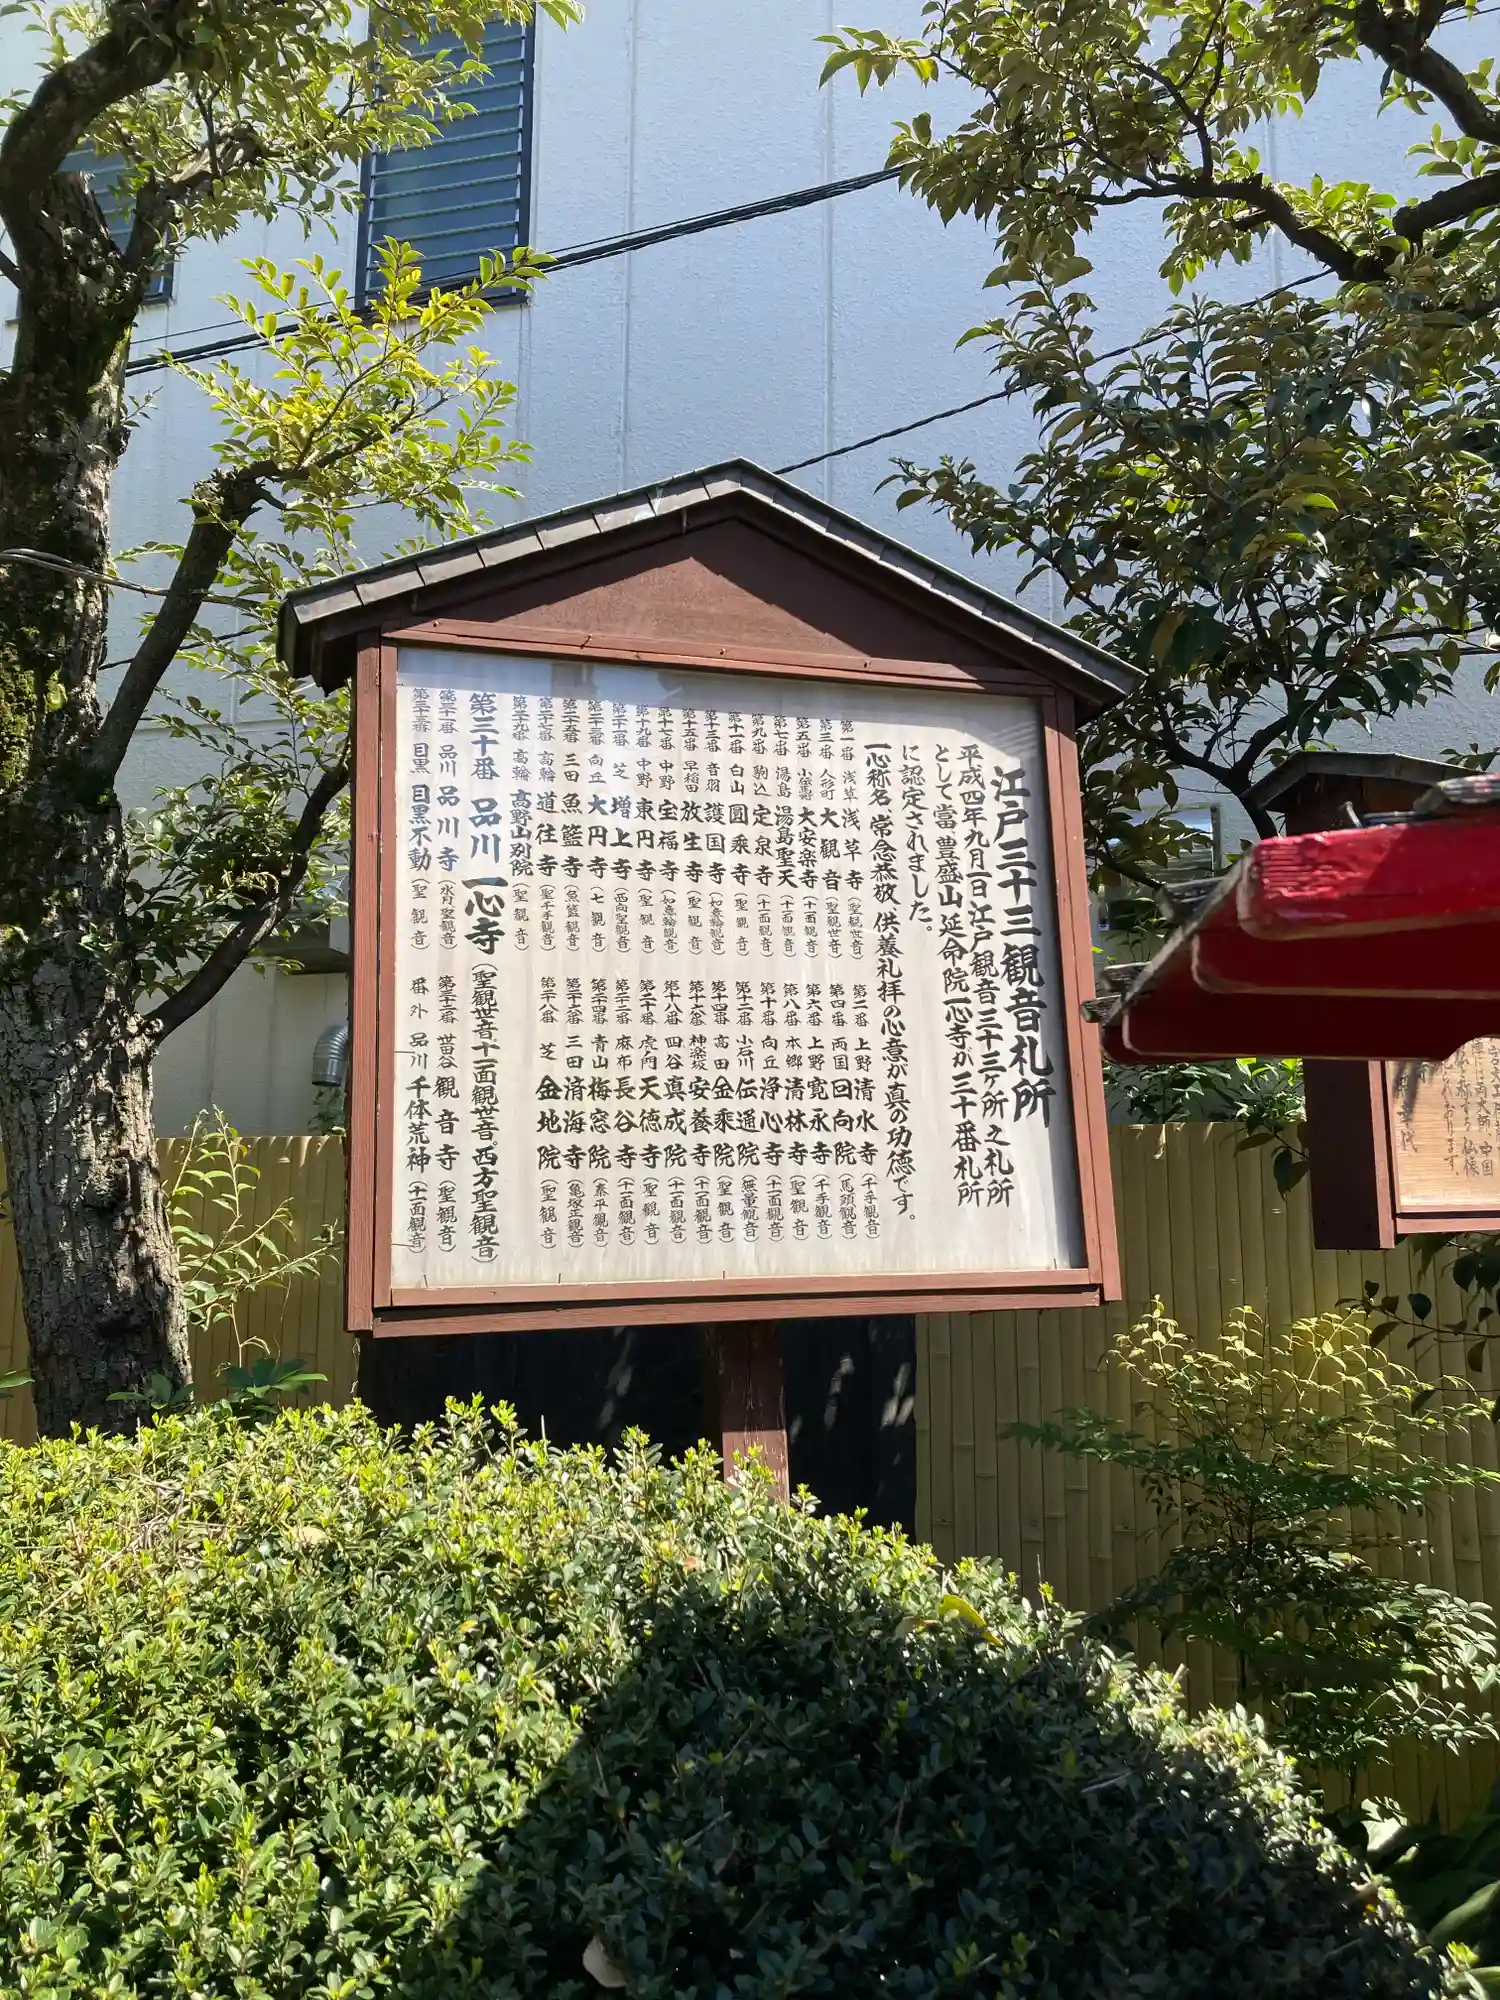 江戸三十三観音札所
平成四年九月一日江戸観音三十三ヶ所之札所
として當豊盛山延命院一心寺が三十番札所
に認定されました。
一心称名常念恭敬、供養礼拝の心意が真の功徳です。
第一番 浅草 浅草寺(聖観世音)
第二番 上野 清水寺(千手観音)
第三番 人形町 大観音(聖観世音)
第四番 両国 回向院(馬頭観音)
第五番 小伝馬 大安楽寺(十一面観音)
第六番 上野 寛永寺(千手観音)
第七番 湯島 湯島聖天(十一面観音)
第八番 本郷 清林寺(聖観音)
第九番 駒込 定泉寺(十一面観音)
第十番 向丘 浄心寺(十一面観音)
第十一番 白山 圓乗寺(聖観音)
第十二番 小石川 伝通院(無量観音)
第十三番 音羽 護国寺(如意輪観音)
第十四番 高田 金乗院(聖観音)
第十五番 早稲田 放生寺(聖観音)
第十六番 神楽坂 安養寺(十一面観音)
第十七番 中野 宝福寺(如意輪観音)
第十八番 四谷 真成院(十一面観音)
第十九番 中野 東円寺(聖観音)
第二十番 虎ノ門 天徳寺(聖観音)
第二十一番 芝 増上寺(西向聖観音)
第二十二番 麻布 長谷寺(十一面観音)
第二十三番 向丘 大円寺(七観音)
第二十四番 青山 梅窓院(泰平観音)
第二十五番 三田 魚籃寺(魚籃観音)
第二十六番 三田 済海寺(亀塚正観音)
第二十七番 高輪 道往寺(聖千手観音)
第二十八番 芝 金地院(聖観音)
第二十九番 高輪 高野山別院(聖観音)
第三十番 品川 一心寺(聖観世音十一面観世音。西方聖観音)
第三十一番 品川 品川寺(水月聖観音)
第三十二番 世田谷 観音寺(聖観音)
第三十三番 目黒 目黒不動(聖観音)
番外 品川 千体荒神(十一面観音)